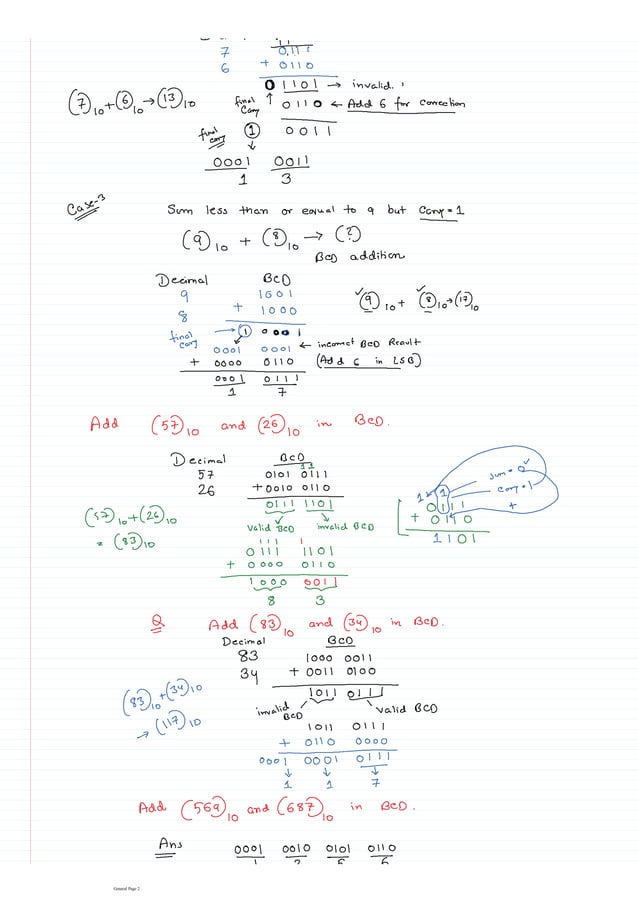 7 0111
6 + 0110
0 1101 → invalid.
(7)10 + (6)10 → (13)10 final carry ↑ 0110 ← Add 6 for correction
final carry ① 0011
0001 0011
1 3
Case-3 Sum less than or equal to 9 but Carry = 1
(9)10 + (8)10 → (?)
BCD addition
Decimal BCD
9 1001 (9)10 + (8)10 → (17)10
8 + 1000
final carry ① 0001
0001 0001 ← incorrect BCD Result
+ 0000 0110 (Add 6 in LSB)
0001 0111
1 7
Add (57)10 and (26)10 in BCD.
Decimal BCD
11
57 0101 0111
26 +0010 0110
0111 1101
valid BCD invalid BCD
sum = 0
carry = 1
+
1 1
0111
+ 0110
1101
(57)10 + (26)10
= (83)10
111 1
0111 1101
+ 0000 0110
1000 0011
8 3
Q Add (83)10 and (34)10 in BCD.
Decimal BCD
83 1000 0011
34 + 0011 0100
1011 0111
invalid BCD valid BCD
(83)10 + (34)10
→ (117)10
1011 0111
+ 0110 0000
0001 0001 0111
1 1 7
Add (569)10 and (687)10 in BCD.
Ans 0001 0010 0101 0110
General Page 2